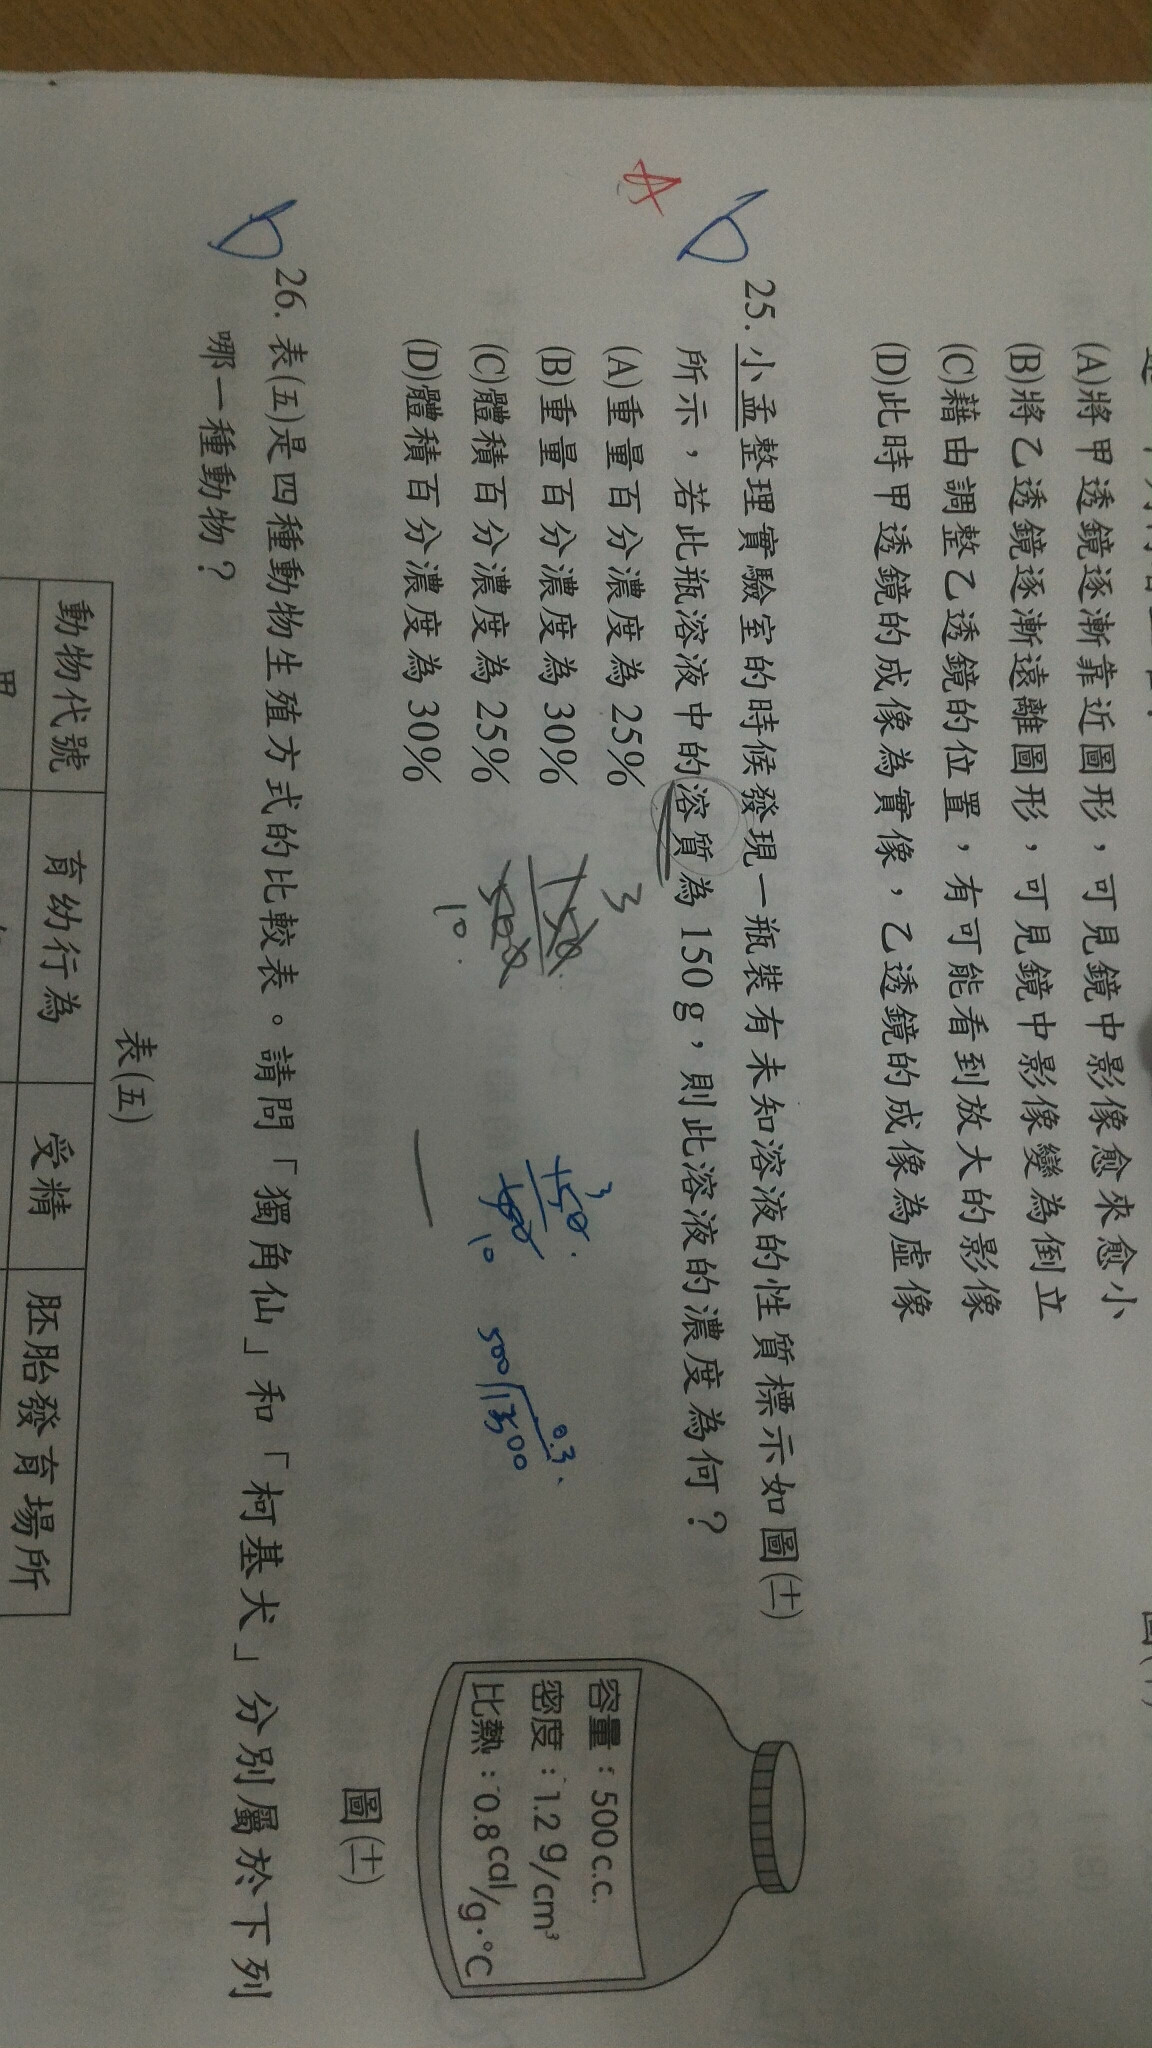 (A)將甲透鏡逐漸靠近圖形，可見鏡中影像愈來愈小
(B)將乙透鏡逐漸遠離圖形，可見鏡中影像變為倒立
(C)藉由調整乙透鏡的位置，有可能看到放大的影像
(D)此時甲透鏡的成像為實像，乙透鏡的成像為虛像
D
25. 小孟整理實驗室的時候發現一瓶裝有未知溶液的性質標示如圖(十一)
A
所示，若此瓶溶液中的溶質為 150 g，則此溶液的濃度為何？
(A)重量百分濃度為 25%
(B)重量百分濃度為 30%
(C)體積百分濃度為 25%
(D)體積百分濃度為 30%
3
150
500
10
3
150
500
10
0.3
500
1500
容量：500c.c.
密度：1.2 g/cm³
比熱：0.8 cal/g·°C
圖(十一)
D
26. 表(五)是四種動物生殖方式的比較表。請問「獨角仙」和「柯基犬」分別屬於下列
哪一種動物？
表(五)
動物代號 育幼行為 受精 胚胎發育場所
甲